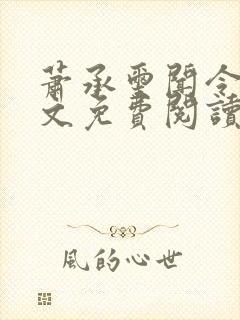 蕭承墨聞令
文免費閱讀
風的心世